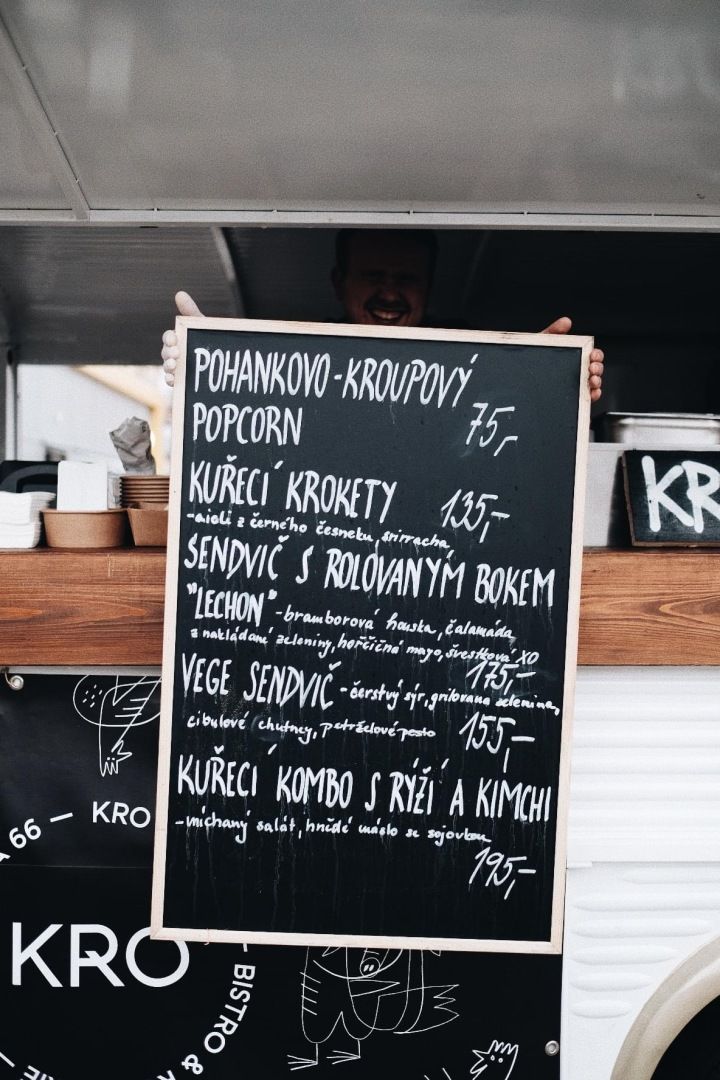 POHANKOVO-KROUPOVÝ
POPCORN 75,-
KUŘECÍ KROKETY 135,-
-aioli z černého česneku, sriracha
SENDVIČ S ROLOVANÝM BOKEM
"LECHON" -bramborová houska, čalamáda
z nakládané zeleniny, hořčičná mayo, švestková XO
175,-
VEGE SENDVIČ -čerstvý sýr, grilovaná zelenina,
cibulové chutney, petrželové pesto 155,-
KUŘECÍ KOMBO S RÝŽÍ A KIMCHI
-míchaný salát, hnědé máslo se sojovkou
195,-
KR
A 66 — KRO
KRO
BISTRO &